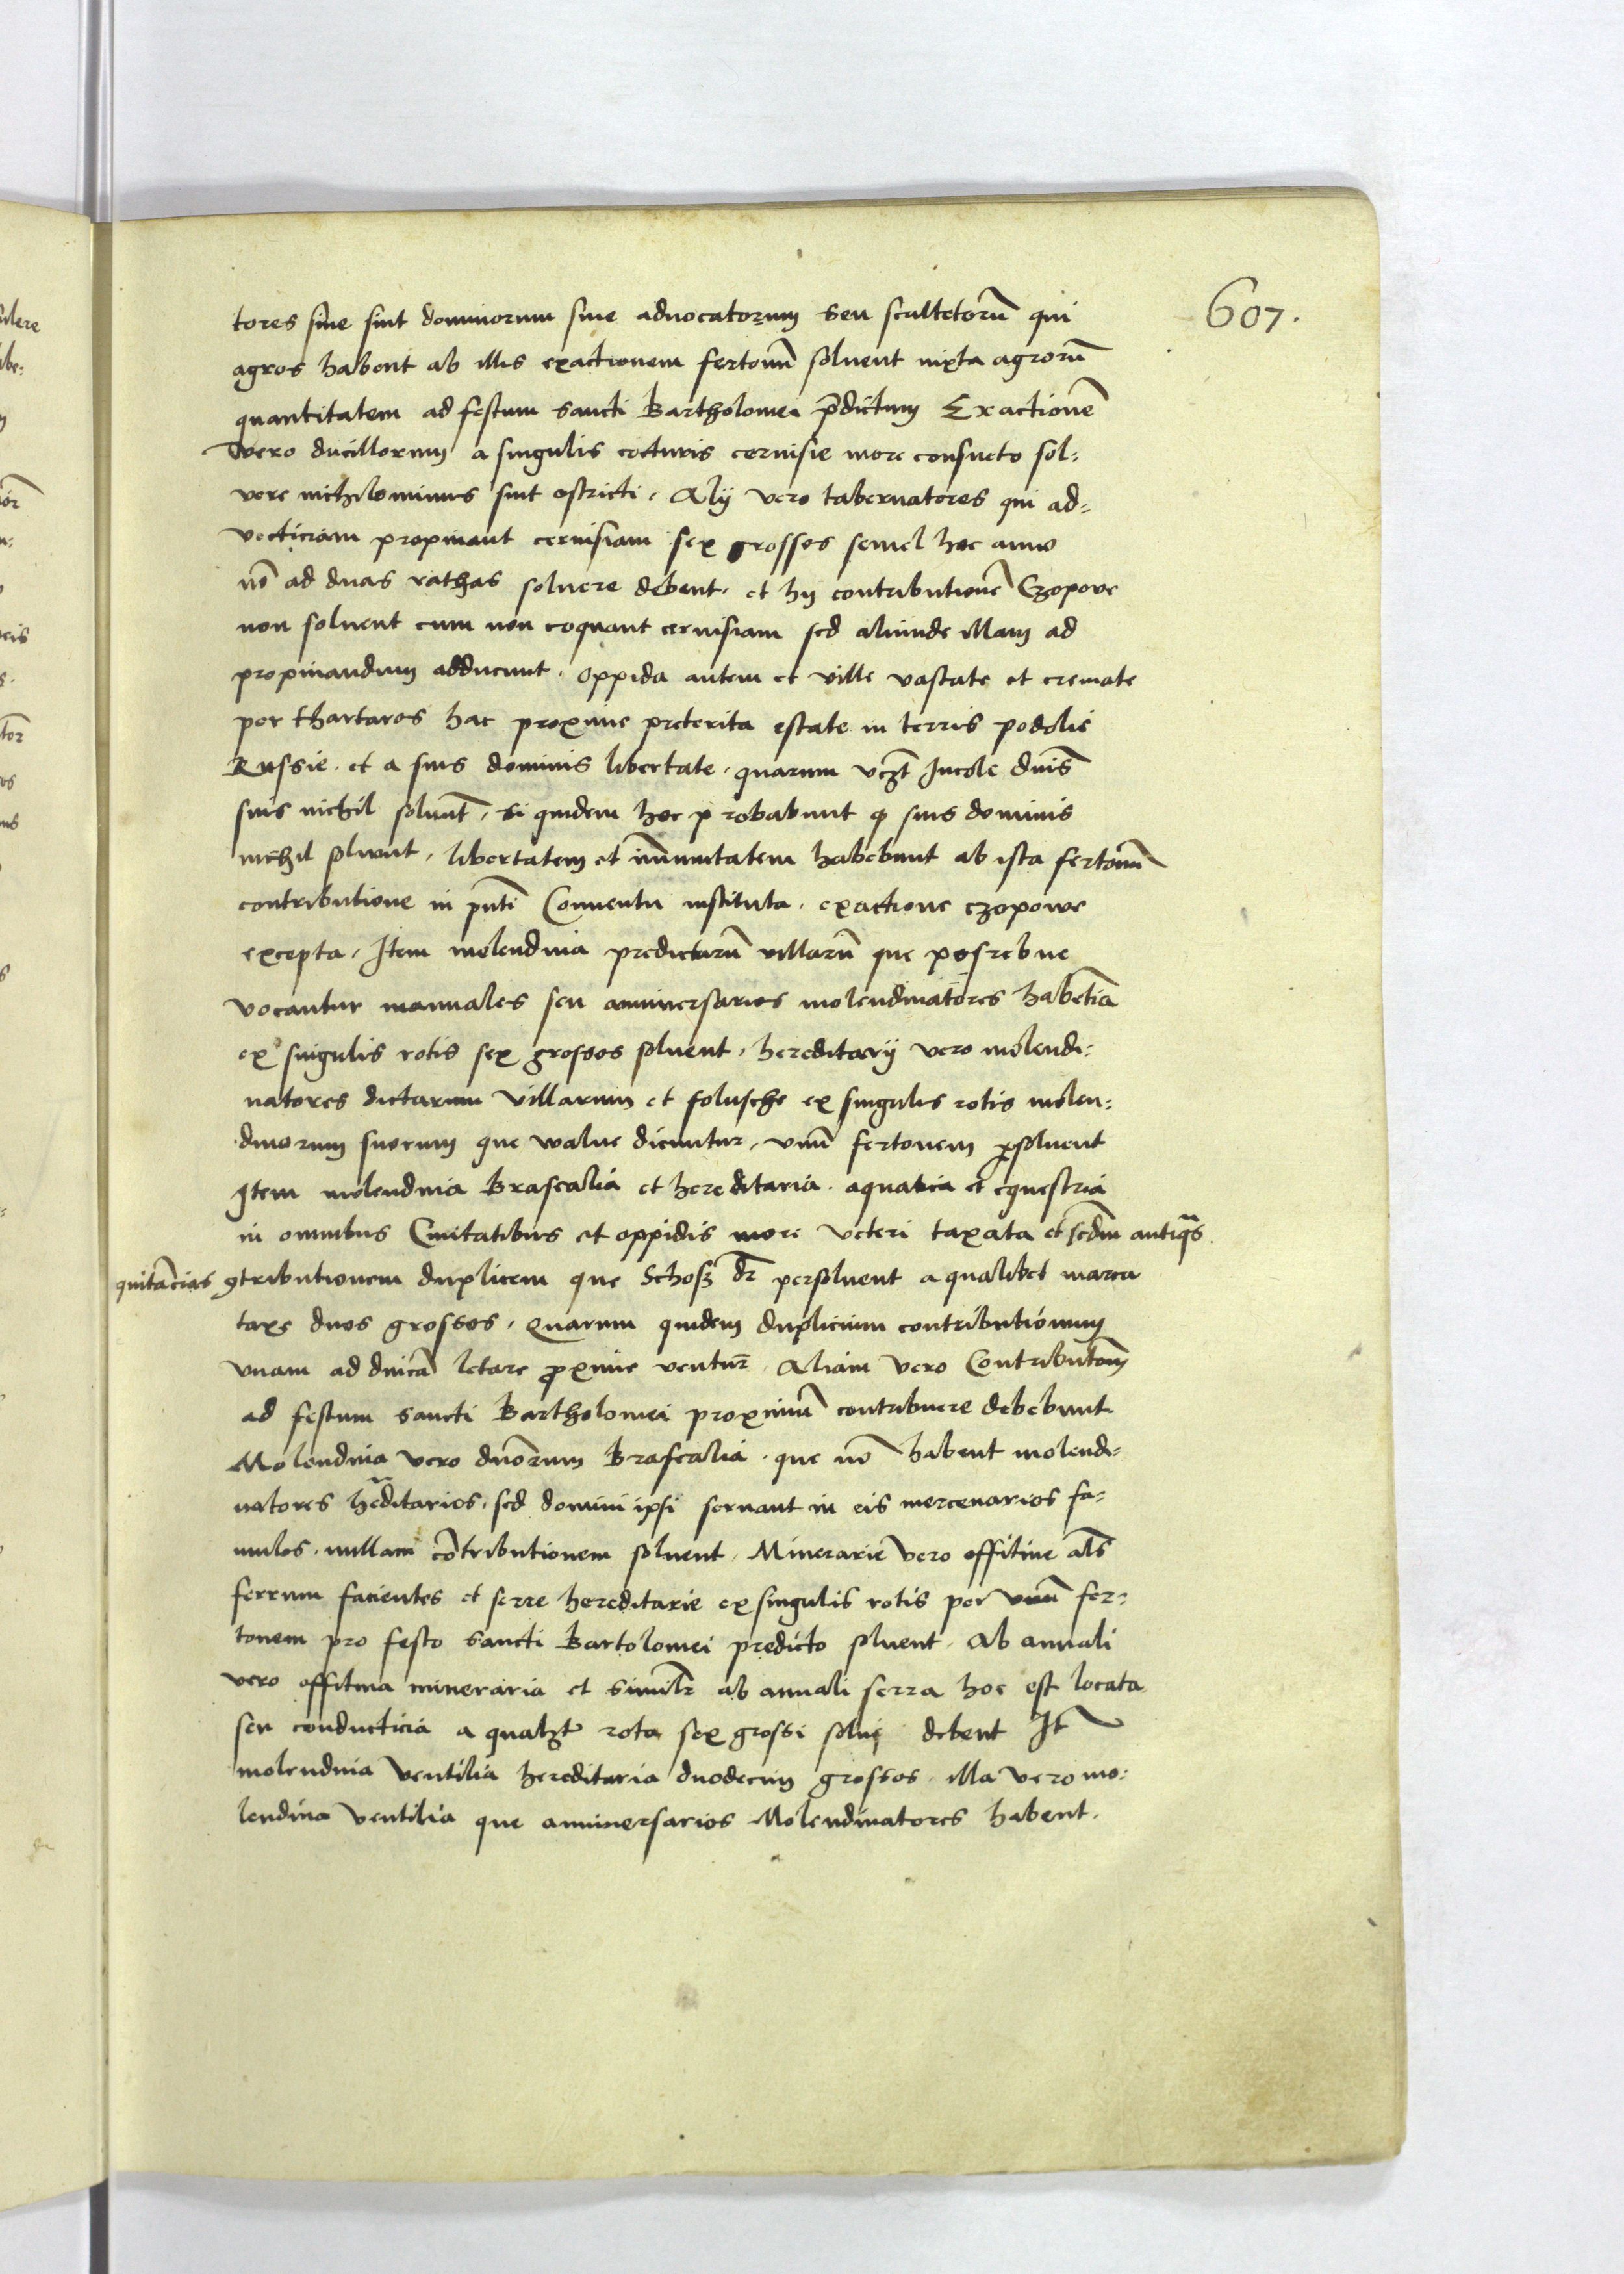 607.
tores siue sint dominorum siue aduocatorum seu scultetorū qui
agros habent ab illis exactionem fertonū soluent iuxta agrorū
quantitatem ad festum sancti Bartholomei p̄dictum Exactionē
vero ducillorum a singulis cocturis ceruisie more consueto sol:
vere nichilominus sint astricti. Alij vero tabernatores qui ad:
vecticiam propinant ceruisiam sex grossos semel hoc anno
nō ad duas rathas soluere debent. et hij contributionē Czopove
non soluent cum non coquant ceruisiam sed aliunde illam ad
propinandum adducunt. Oppida autem et ville vastate et cremate
per thartaros hac proxime preterita estate in terris podolie
Russie. et a suis dominis libertate. quarum vczt Incole dnis̄
suis nichil soluūt. si quidem hoc probabunt q̄ suis dominis
nichil soluunt. libertatem et im̄unitatem habebunt ab ista fertonū
contributione in pn̄ti Conuentu instituta. exactione czopowe
excepta. Item molendina predictarū villarū que posrebne
vocantur manuales seu anniuersarios molendinatores habētia
ex singulis rotis sex grossos soluent. hereditarij vero molendi:
natores dictarum villarum et folusche ex singulis rotis molen:
dinorum suorum que walne dicuntur. vnū fertonem ꝑsoluent
Item molendina Brasealia et hereditaria. aquatica et equestria
in omnibus Ciuitatibus et oppidis more veteri taxata et scdm̄ antiq̄s.
quitācias ꝯtributionem duplicem que Schosz dr̄ persoluent a qualibet marca
taxe duos grossos. Quarum quidem duplicium contributionum
vnam ad dn̄icā letare ꝓxime ventur̄. Aliam vero Contributōm̄
ad festum sancti Bartholomei proximū contribuere debebunt
Molendina vero dn̄orum Brasealia. que nō habent molendi:
natores hēditarios. sed domini ipsi seruant in eis mercenarios fa:
mulos. nullam cōtributionem soluent. Minerarie vero offitine als̄
ferrum facientes et serre hereditarie ex singulis rotis per vnū fer:
tonem pro festo sancti Bartolomei predicto soluent. Ab annali
vero offitina mineraria et similr̄ ab annali serra hoc est locata
seu conducticia a qualzt rota sex grossi solui debent It̄
molendina ventilia hereditaria duodecim grossos. illa vero mo:
lendina ventilia que anniuersarios Molendinatores habent.